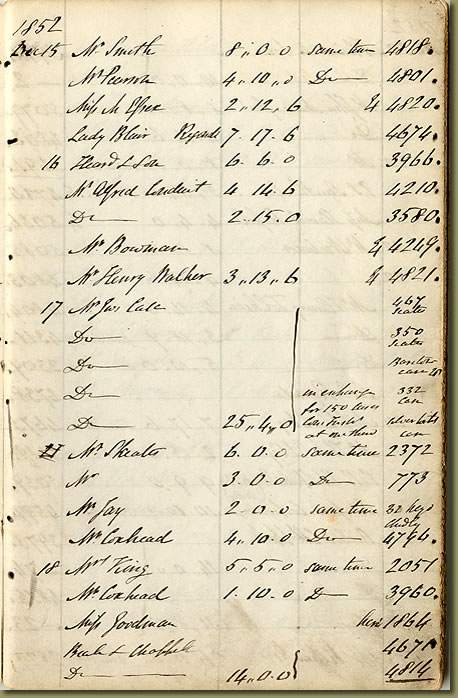 1852
Dec 15 Mr Smith 8 „ 0 . 0 same time 4818 .
Mr Pearson 4 „ 10 „ 0 Do 4801 .
Miss M 2 „ 12 „ 6 & 4820 .
Lady Blair 7 . 17 . 6 4674 .
16 Heard & Son 6 . 6 . 0 3966 .
Mr Alfred Conduit 4 14 . 6 4210 .
Do 2 . 15 . 0 3580 .
Mr Bowman & 4249 .
Mr Henry Walker 3 „ 13 „ 6 & 4821 .
17 Mr Jas Case 467
Do 350
Do case
Do in exchange 332
for 150 case
Do 25 „ 4 „ 0 at case
Mr Skeates 6 . 0 . 0 same time 2372
Mr 3 . 0 . 0 Do 773
Mr Jay 2 . 0 . 0 same time 32 keys
Mr Coxhead 4 „ 10 . 0 Do 4796 .
18 Mrs King 5 „ 5 „ 0 same time 2051
Mr Coxhead 1 . 10 . 0 Do 3960 .
Miss Goodman hire 1864
Beale & Chappell 4671
Do 14 „ 0 . 0 4814